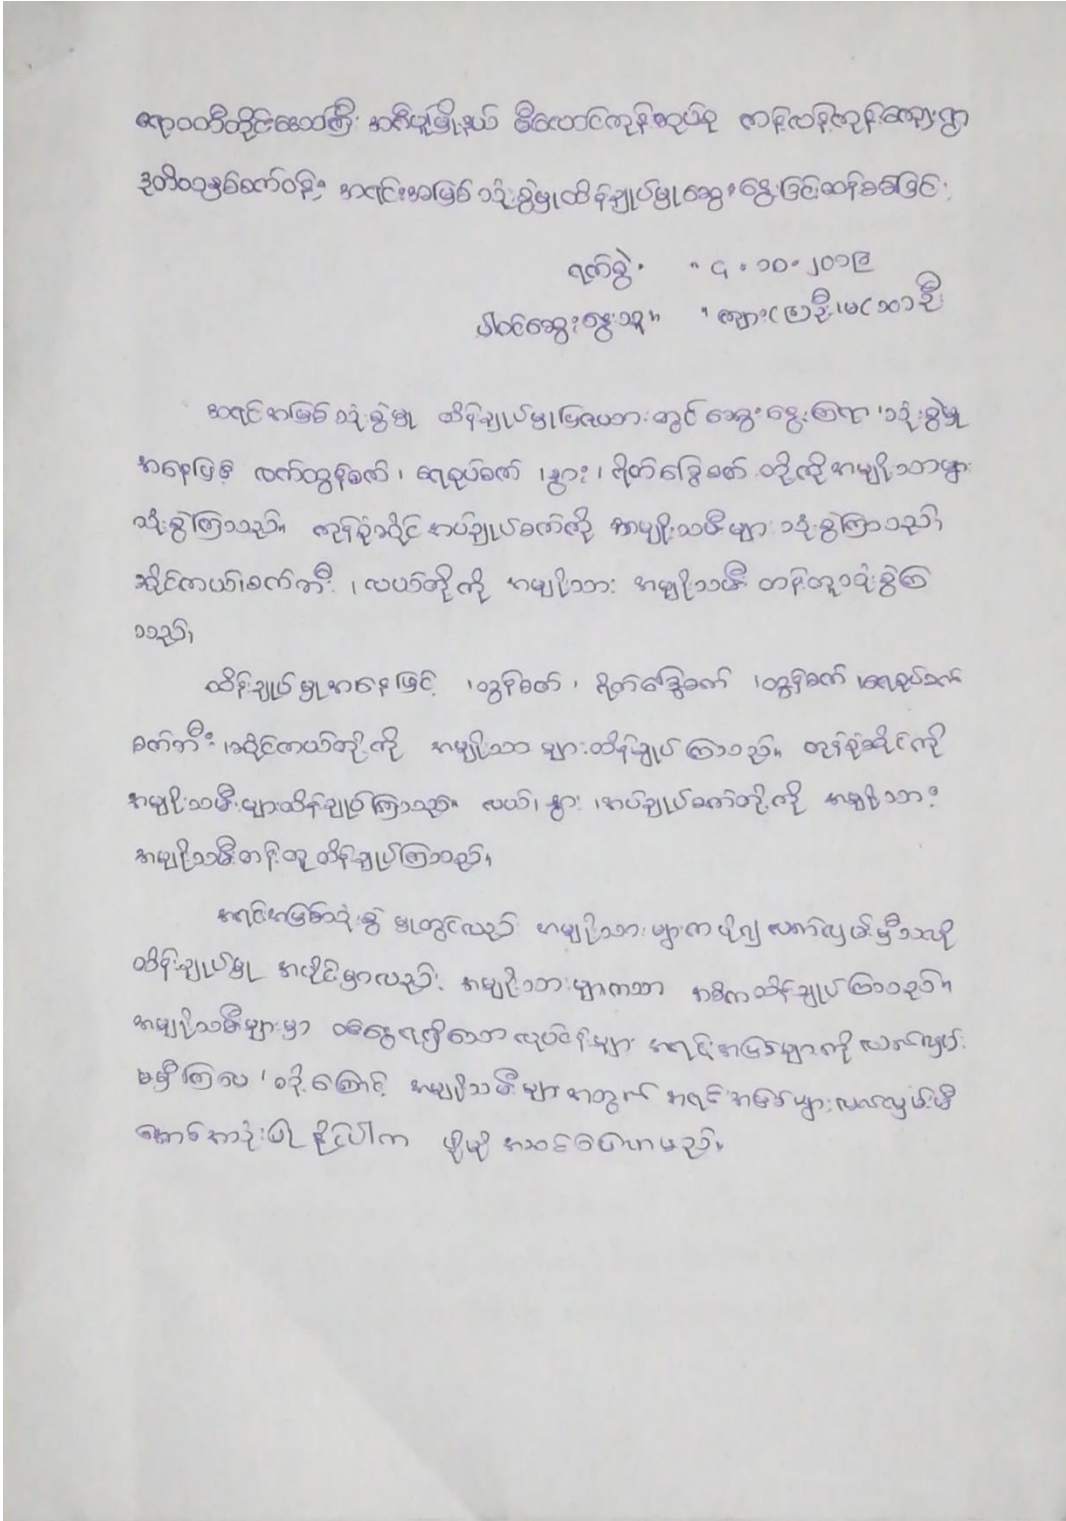 ဧရာဝတီတိုင်းဒေသကြီး အင်္ဂပူမြို့နယ် မီးလောင်ကုန်းအုပ်စု ကန့်လန့်ကုန်းကျေးရွာ
ဒုတိယနှစ်စက်ဝန်း အရင်းအမြစ်သုံးစွဲမှုထိန်းချုပ်မှုဆွေးနွေးခြင်းဆန်းစစ်ခြင်း
ရက်စွဲ - ၄.၁၀.၂၀၁၉
ပါဝင်ဆွေးနွေးသူ။
အရင်းအမြစ်သုံးစွဲမှု ထိန်းချုပ်မှုမြေဇယားတွင်ဆွေးနွေးကြရာ ၊သုံးစွဲမှု
အနေဖြင့် လက်တွန်းစက်၊ ရေစုပ်စက် ၊နွား၊ ရိတ်ခြွေစက် တို့ကိုအမျိုးသားများ
သုံးစွဲကြသည်။ ကုန်စုံဆိုင် အပ်ချုပ်စက်ကို အမျိုးသမီးများ သုံးစွဲကြသည်၊
ဆိုင်ကယ်၊စက်ဘီး ၊လယ်တို့ကို အမျိုးသား အမျိုးသမီး တန်းတူသုံးစွဲကြ
သည်၊
ထိန်းချုပ်မှုအနေဖြင့် ၊ထွန်စက်၊ ရိတ်ခြွေစက် ၊တွန်းစက် ၊ရေစုပ်စက်
စက်ဘီး ၊ဆိုင်ကယ်တို့ကို အမျိုးသားများထိန်းချုပ်ကြသည်။ ကုန်စုံဆိုင်ကို
အမျိုးသမီးများထိန်းချုပ်ကြသည်။ လယ်၊ နွား ၊အပ်ချုပ်စက်တို့ကို အမျိုးသား
အမျိုးသမီးတန်းတူ ထိန်းချုပ်ကြသည်။
အရင်းအမြစ်သုံးစွဲမှုတွင်လည်း အမျိုးသားများကပို၍လက်လှမ်းမှီသလို
ထိန်းချုပ်မှု အပိုင်းမှာလည်း အမျိုးသားများကသာ အဓိကထိန်းချုပ်ကြသည်။
အမျိုးသမီးများမှာ ဝင်ငွေရရှိသော လုပ်ငန်းများ အရင်းအမြစ်များကို လက်လှမ်း
မမှီကြပေ ၊သို့ကြောင့် အမျိုးသမီးများအတွက် အရင်းအမြစ်များလက်လှမ်းမှီ
အောင် ပိုမို အဆင်ပြေပေမည်။